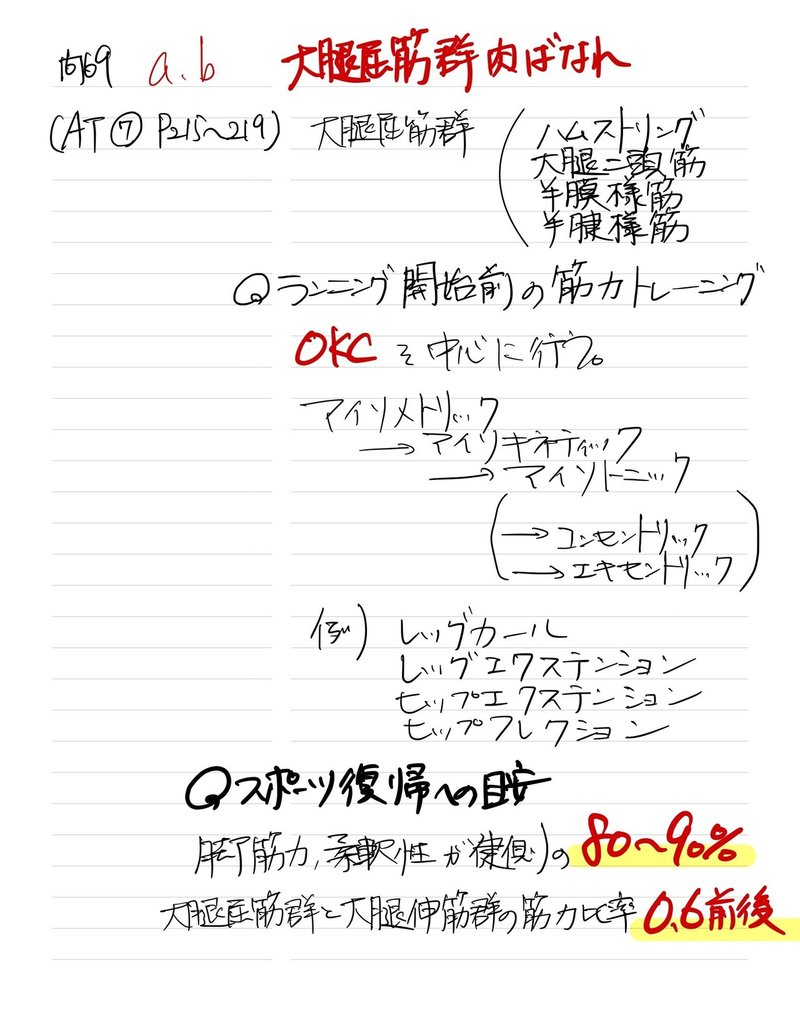 問69 a.b 大腿屈筋群肉ばなれ
(AT⑦ P215〜219) 大腿屈筋群
ハムストリング
大腿二頭筋
半膜様筋
半腱様筋
Qランニング開始前の筋力トレーニング
OKCを中心に行う。
アイソメトリック
→アイソキネティック
→アイソトニック
(→コンセントリック
→エキセントリック)
例) レッグカール
レッグエクステンション
ヒップエクステンション
ヒップフレクション
Qスポーツ復帰への目安
脚筋力,柔軟性が健側の80〜90%
大腿屈筋群と大腿伸筋群の筋力比率0.6前後